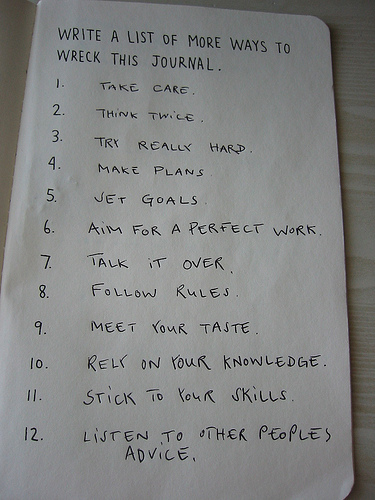 WRITE A LIST OF MORE WAYS TO
WRECK THIS JOURNAL.
1. TAKE CARE.
2. THINK TWICE.
3. TRY REALLY HARD.
4. MAKE PLANS
5. SET GOALS.
6. AIM FOR A PERFECT WORK.
7. TALK IT OVER.
8. FOLLOW RULES.
9. MEET YOUR TASTE.
10. RELY ON YOUR KNOWLEDGE.
11. STICK TO YOUR SKILLS.
12. LISTEN TO OTHER PEOPLES
ADVICE.